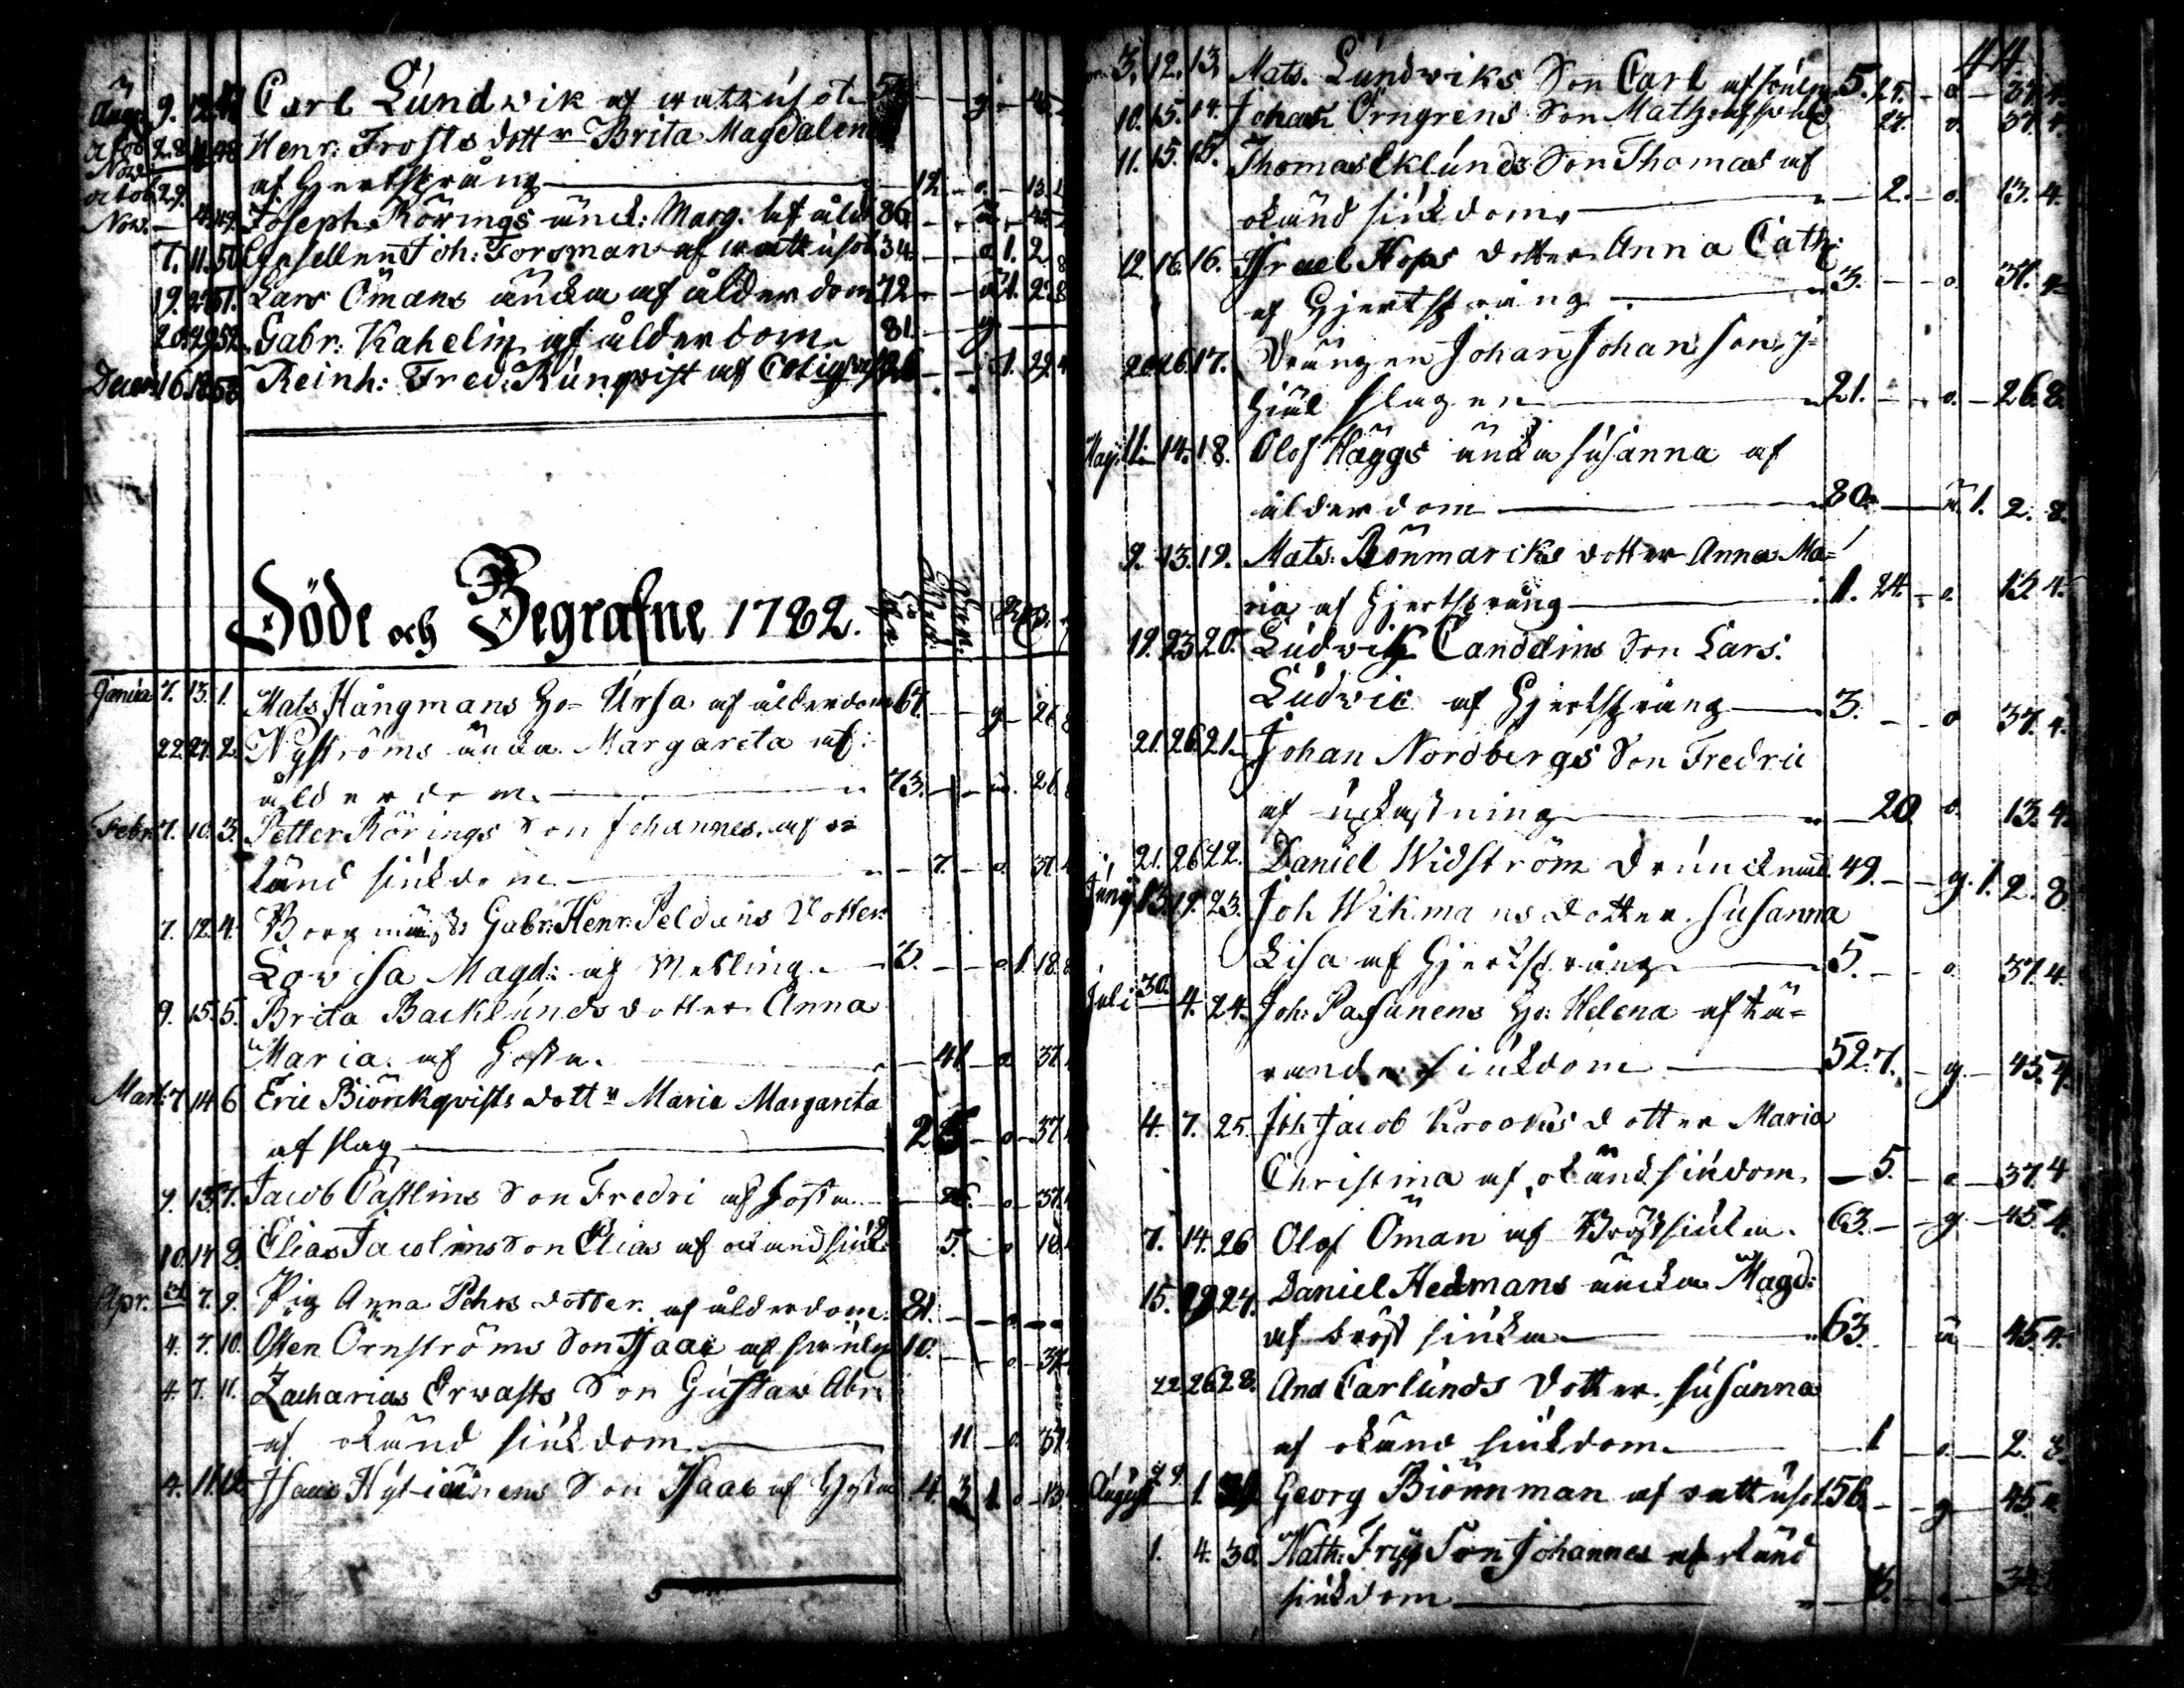 Aug. 9. 12. 47 Carl Lundwik af wattusot 5 g 45
octob 28 48 Henr: Frosts dottr Brita Magdalena
Now
af Hjertsprång 12. o. 13
octob 29.
Now. 4. 49. Joseph Rörings änck: Marg. af åld: 86. ä 45
7. 11. 50 Gesellen Joh: Forsman af wattusot 34 o 1. 2. 8
19. 51. Lars Ömans äncka af ålderdom 72 ä 1. 2. 8
52. Gabr: Kahelin af ålderdom 81. g.
Decem 16. 18. 53 Reinh: Fred: Runqvist af Colique 26 1. 22. 4
Döde och Begrafne 1782.
Janua 7. 13. 1. Mats Hångmans Ho= Ursa af ålderdom 67. g 26. 8
22. 27. 2. Nyströms äncka Margareta af
ålderdom. 73. ä. 26. 8
Febr. 7. 10. 3. Petter Rörings Son Johannes af o=
känd siukdom 7. o. 37. 4
7. 12. 4. Borgmäst: Gabr: Henr: Peldans Dotter
Lowisa Magd: af Messling 3. o 1. 18. 8
9. 15. 5. Brita Backlunds dotter Anna
Maria af Hosta. 41 o 37
Mart. 7 14 6 Eric Biörckqvists dottr Maria Margareta
af slag 25 o 37
7. 13. 7. Jacob Castlins Son Fredri af Hosta 26. o 37
10. 14 8. Elias Jacolins Son Elias af okänd siuk 5. o 18
Apr. 7. 9. Pig Anna Pehrs dotter af ålderdom. 81. o.
4. 7. 10. Osten Örnströms Son Isaac af 10. o. 37
4. 7. 11. Zacharias Erwasts Son Gustaw Abr:
af okänd siukdom 11 o. 37
4. 11. 12. Isaac Hytiäinens Son Isaac af Hosta 4. 3 1. o 13
44
3. 12. 13. Mats. Lundwiks Son Carl af 5. 27. o 37. 4.
10. 15. 14. Johan Örngrens Son Mathz af 27. o. 37. 4.
11. 15. 15. Thomas Eklunds Son Thomas af
okänd siukdom 2. o. 13. 4.
12. 16. 16. Israel Hops dotter Anna Cath:
af Hjertsprång 3. o. 37. 4
20. 26. 17. Drängen Johan Johansson i=
hiäl slagen 21. o. 26. 8.
Maji 11. 14. 18. Olof Häggs äncka Susanna af
ålderdom 80. ä 1. 2. 8.
9. 13. 19. Mats: Rönmarcks dotter Anna Ma=
ria af Hjertsprång 1. 24. o. 13 4.
19. 23 20. Ludwik Canddins Son Lars.
Ludwic af Hjertsprång 3. o 37. 4.
21. 26. 21. Johan Nordbergs Son Fredric
af upkastning 20 o. 13. 4.
21. 26. 22. Daniel Widström Drunknad 49. g. 1. 2. 8.
Junij 13. 19. 23. Joh Wikmans dotter Susanna
Lisa af Hjertsprång 5. o. 37. 4.
Juli 30. 4. 24. Joh: Pasanens Ho: Helena af tä=
rande siukdom 52. 7. g. 45. 4.
4. 7. 25. Joh Jacob Krooks dotter Maria
Christina af okänd siukdom 5. o 37. 4
7. 14. 26 Olof Öman af Bröstsiuka. 63. g. 45. 4.
15. 27. Daniel Hedmans äncka Magd:
af bröst siuka 63. ä 45. 4.
22. 26. 28. And Carlunds dotter Susanna
af okänd siukdom 1 o. 2. 8.
August 29 1. 29 Georg Biörnman af rattusot 56. g 45. 4
1. 4. 30. Nath: Frijs Son Johannes af okänd
siukdom